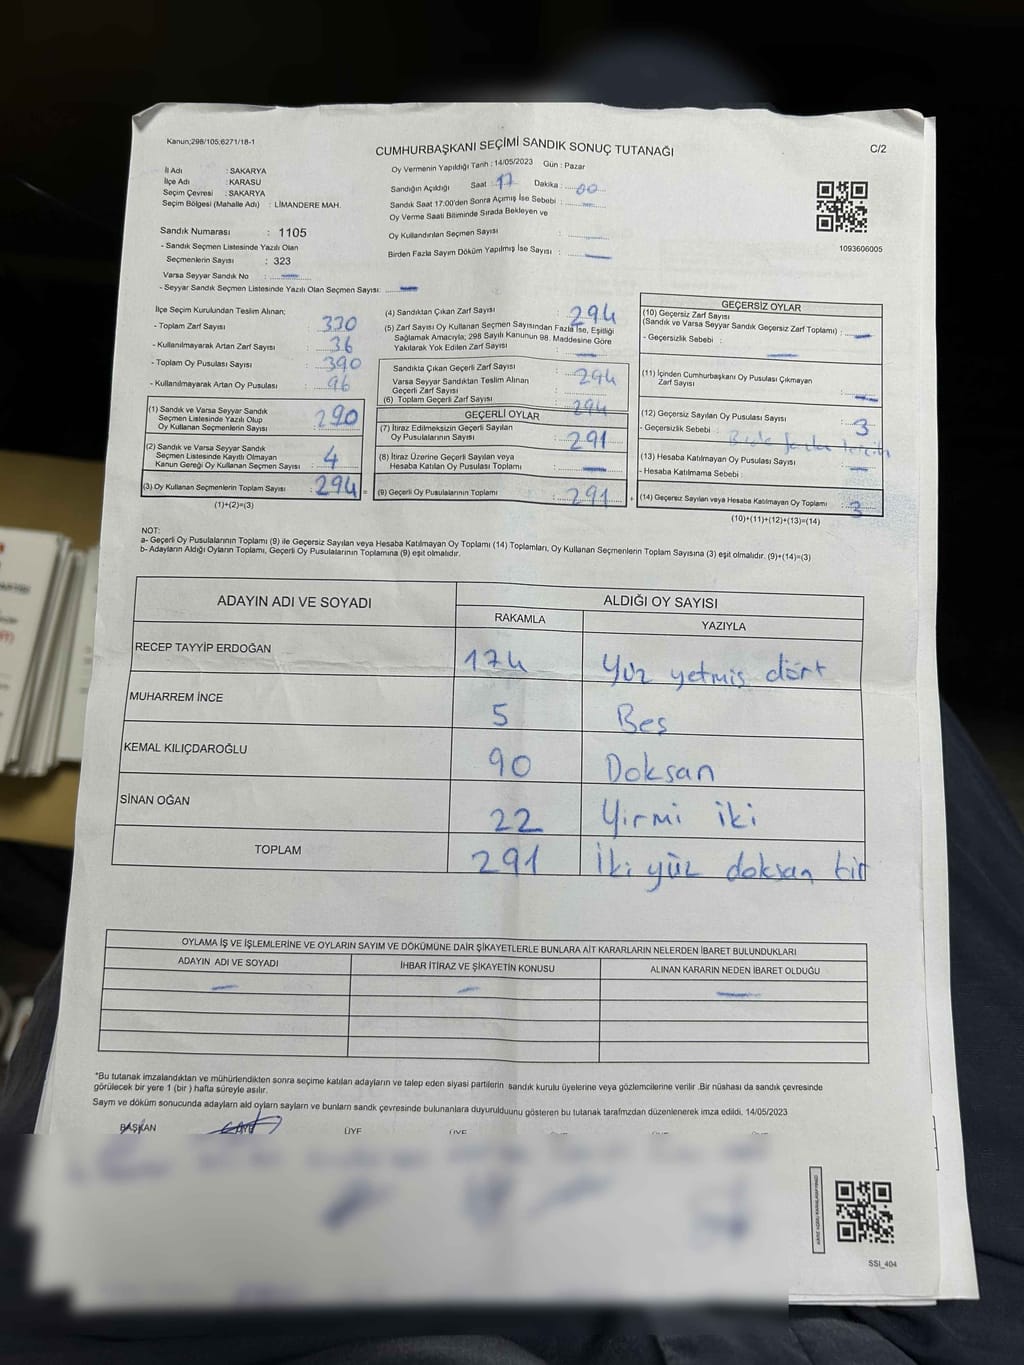 Kanun;298/105;6271/18-1
CUMHURBAŞKANI SEÇİMİ SANDIK SONUÇ TUTANAĞI
C/2
İl Adı : SAKARYA
İlçe Adı : KARASU
Seçim Çevresi : SAKARYA
Seçim Bölgesi (Mahalle Adı) : LİMANDERE MAH.
Oy Vermenin Yapıldığı Tarih : 14/05/2023 Gün : Pazar
Sandığın Açıldığı Saat : 17 Dakika : 00
Sandık Saat 17:00'den Sonra Açımış İse Sebebi :
Oy Verme Saati Bitiminde Sırada Bekleyen ve
Oy Kullandırılan Seçmen Sayısı :
Birden Fazla Sayım Döküm Yapılmış İse Sayısı :
1093606005
Sandık Numarası : 1105
- Sandık Seçmen Listesinde Yazılı Olan
Seçmenlerin Sayısı : 323
Varsa Seyyar Sandık No :
- Seyyar Sandık Seçmen Listesinde Yazılı Olan Seçmen Sayısı:
İlçe Seçim Kurulundan Teslim Alınan;
- Toplam Zarf Sayısı : 330
- Kullanılmayarak Artan Zarf Sayısı : 36
- Toplam Oy Pusulası Sayısı : 390
- Kullanılmayarak Artan Oy Pusulası : 96
(1) Sandık ve Varsa Seyyar Sandık
Seçmen Listesinde Yazılı Olup
Oy Kullanan Seçmenlerin Sayısı : 290
(2) Sandık ve Varsa Seyyar Sandık
Seçmen Listesinde Kayıtlı Olmayan
Kanun Gereği Oy Kullanan Seçmen Sayısı : 4
(3) Oy Kullanan Seçmenlerin Toplam Sayısı : 294 =
(1)+(2)=(3)
(4) Sandıktan Çıkan Zarf Sayısı : 294
(5) Zarf Sayısı Oy Kullanan Seçmen Sayısından Fazla İse, Eşitliği
Sağlamak Amacıyla; 298 Sayılı Kanunun 98. Maddesine Göre
Yakılarak Yok Edilen Zarf Sayısı :
Sandıkta Çıkan Geçerli Zarf Sayısı : 294
Varsa Seyyar Sandıktan Teslim Alınan
Geçerli Zarf Sayısı :
(6) Toplam Geçerli Zarf Sayısı : 294
GEÇERLİ OYLAR
(7) İtiraz Edilmeksizin Geçerli Sayılan
Oy Pusulalarının Sayısı : 291
(8) İtiraz Üzerine Geçerli Sayılan veya
Hesaba Katılan Oy Pusulası Toplamı :
(9) Geçerli Oy Pusulalarının Toplamı : 291 +
GEÇERSİZ OYLAR
(10) Geçersiz Zarf Sayısı
(Sandık ve Varsa Seyyar Sandık Geçersiz Zarf Toplamı) :
- Geçersizlik Sebebi :
(11) İçinden Cumhurbaşkanı Oy Pusulası Çıkmayan
Zarf Sayısı :
(12) Geçersiz Sayılan Oy Pusulası Sayısı : 3
- Geçersizlik Sebebi : fazla tercih
(13) Hesaba Katılmayan Oy Pusulası Sayısı :
- Hesaba Katılmama Sebebi :
(14) Geçersiz Sayılan veya Hesaba Katılmayan Oy Toplamı : 3
(10)+(11)+(12)+(13)=(14)
NOT:
a- Geçerli Oy Pusulalarının Toplamı (9) ile Geçersiz Sayılan veya Hesaba Katılmayan Oy Toplamı (14) Toplamları, Oy Kullanan Seçmenlerin Toplam Sayısına (3) eşit olmalıdır. (9)+(14)=(3)
b- Adayların Aldığı Oyların Toplamı, Geçerli Oy Pusulalarının Toplamına (9) eşit olmalıdır.
ADAYIN ADI VE SOYADI
ALDIĞI OY SAYISI
RAKAMLA YAZIYLA
RECEP TAYYİP ERDOĞAN 174 Yüz yetmiş dört
MUHARREM İNCE 5 Beş
KEMAL KILIÇDAROĞLU 90 Doksan
SİNAN OĞAN 22 Yirmi iki
TOPLAM 291 İki yüz doksan bir
OYLAMA İŞ VE İŞLEMLERİNE VE OYLARIN SAYIM VE DÖKÜMÜNE DAİR ŞİKAYETLERLE BUNLARA AİT KARARLARIN NELERDEN İBARET BULUNDUKLARI
ADAYIN ADI VE SOYADI İHBAR İTİRAZ VE ŞİKAYETİN KONUSU ALINAN KARARIN NEDEN İBARET OLDUĞU
"Bu tutanak imzalandıktan ve mühürlendikten sonra seçime katılan adayların ve talep eden siyasi partilerin sandık kurulu üyelerine veya gözlemcilerine verilir .Bir nüshası da sandık çevresinde
görülecek bir yere 1 (bir ) hafta süreyle asılır.
Saym ve döküm sonucunda adaylarn ald oylarn saylarn ve bunlarn sandk çevresinde bulunanlara duyurulduunu gösteren bu tutanak tarafmzdan düzenlenerek imza edildi. 14/05/2023
BAŞKAN ÜYE ÜYE ÜYE ÜYE ÜYE ÜYE
SSI_404